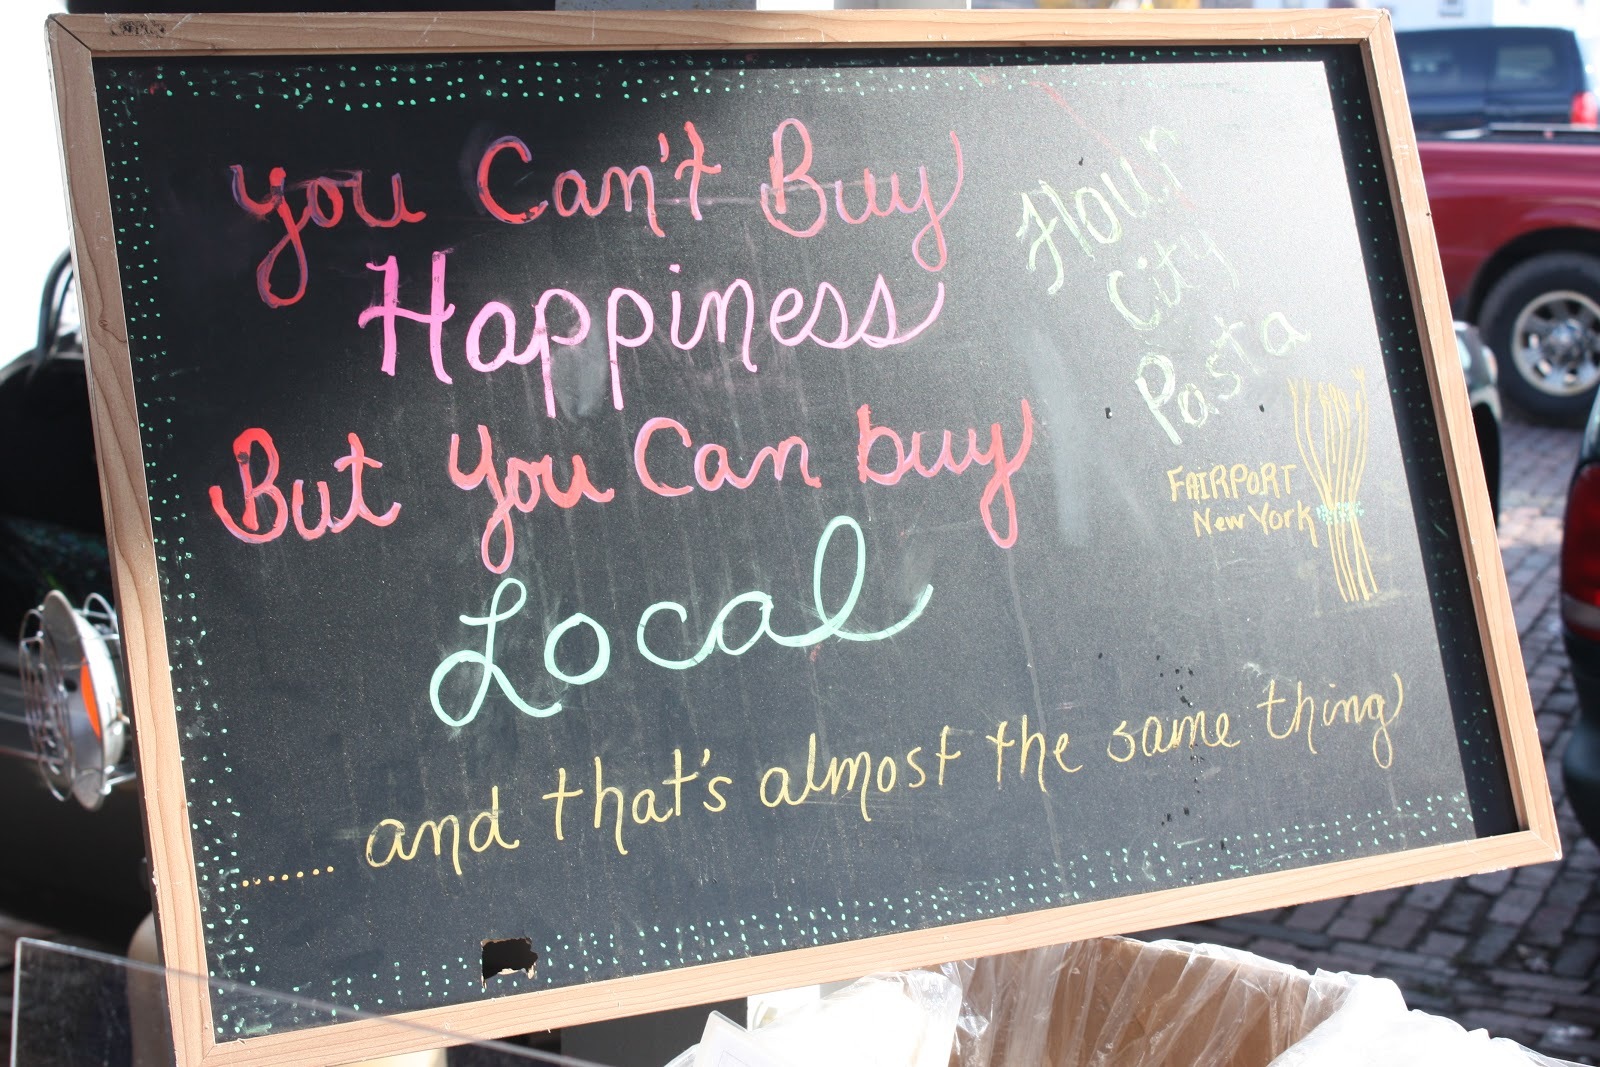 you Can't Buy
Happiness
But you Can buy
Local
....... and that's almost the same thing
Flour
City
Pasta
FAIRPORT
New York